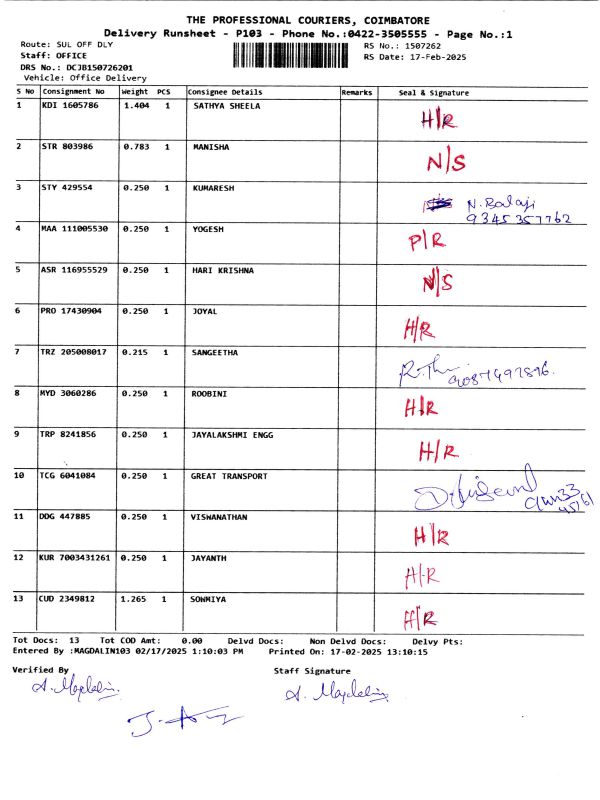 THE PROFESSIONAL COURIERS, COIMBATORE
Delivery Runsheet - P103 - Phone No.:0422-3505555 - Page No.:1
Route: SUL OFF DLY RS No.: 1507262
Staff: OFFICE RS Date: 17-Feb-2025
DRS No.: DCJB150726201
Vehicle: Office Delivery
S No Consignment No Weight PCS Consignee Details Remarks Seal & Signature
1 KDI 1605786 1.404 1 SATHYA SHEELA H/R
2 STR 803986 0.783 1 MANISHA N/S
3 STY 429554 0.250 1 KUMARESH N. Balaji
9345357762
4 MAA 111005530 0.250 1 YOGESH P/R
5 ASR 116955529 0.250 1 HARI KRISHNA N/S
6 PRO 17430904 0.250 1 JOYAL H/R
7 TRZ 205008017 0.215 1 SANGEETHA
8 MYD 3060286 0.250 1 ROOBINI H/R
9 TRP 8241856 0.250 1 JAYALAKSHMI ENGG H/R
10 TCG 6041084 0.250 1 GREAT TRANSPORT
11 DDG 447885 0.250 1 VISWANATHAN H/R
12 KUR 7003431261 0.250 1 JAYANTH H/R
13 CUD 2349812 1.265 1 SOWMIYA H/R
Tot Docs: 13 Tot COD Amt: 0.00 Delvd Docs: Non Delvd Docs: Delvy Pts:
Entered By :MAGDALIN103 02/17/2025 1:10:03 PM Printed On: 17-02-2025 13:10:15
Verified By Staff Signature
A. Magdalin. A. Magdalin